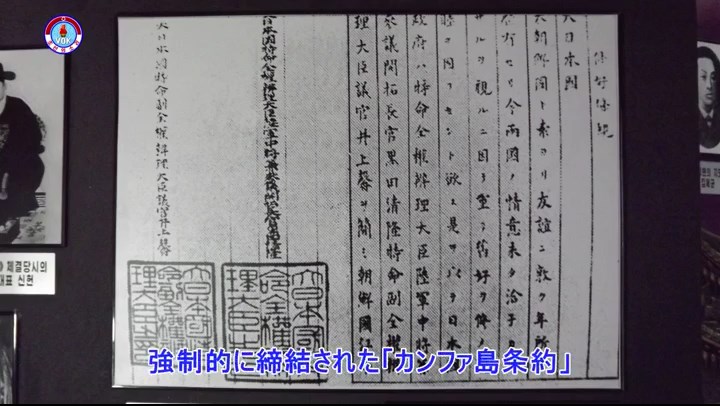 VOK
修好條規
大日本國
大朝鮮國ト素ヨリ友誼ニ敦ク年所
セリ今兩國ノ情意未タ洽子カ
サルヲ視ルニ因テ重テ舊好ヲ修メ
固フセント欲ス是ヲ以テ日本
政府ハ特命全權辨理大臣陸軍中將
參議開拓長官黑田清隆特命副全權
理大臣議官井上馨ヲ簡ミ朝鮮國江
大日本國特命全權辨理大臣陸軍中將兼參議開拓長官黑田清隆
大日本國特命副全權辨理大臣議官井上馨
체결당시의
대표 신헌
強制的に締結された「カンファ島条約」